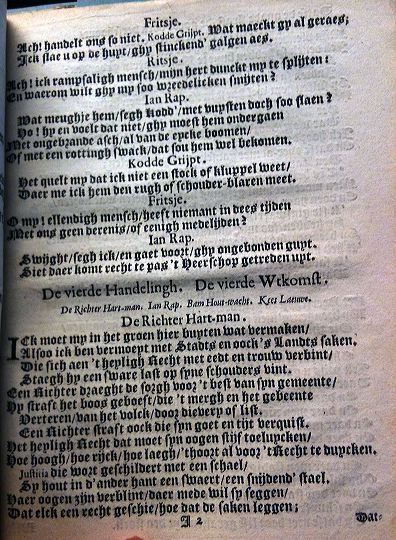 Fritsje.
Ach! handelt ons so niet. Kodde Grijpt. Wat maeckt gy al geraes;
Ick slae u op de hupt/ ghy stinckend' galgen aes.
Ritsje.
Ach! ick rampsaligh mensch/ mijn hert dunckt my te splijten:
En waerom wilt ghy my soo wreedelicken smijten?
Ian Rap.
Wat meughje hem/ segh Kodd'/ met vuysten doch soo slaen?
Ho! hy en voelt dat niet/ ghy moest hem ondergaen
Met ongebrande asch/ al van de eycke boomen/
Of met een rottingh swack/ dat sou hem wel bekomen.
Kodde Grijpt.
Het quelt my dat ick niet een stock of kluppel weet/
Daer me ick hem den rugh of schouder-blaren meet.
Fritsje.
O my! ellendigh mensch/ heeft niemant in dees tijden
Met ons geen derenis/ of eenigh medelijden?
Ian Rap.
Swijght/ segh ick/ en gaet voort/ ghy ongebonden guyt.
Siet daer komt recht te pas 't Heerschop getreden uyt.
De vierde Handelingh. De vierde Wtkomst.
De Richter Hart-man, Ian Rap, Bam Hout-wacht, Kees Leeuwe.
De Richter Hart-man.
IEck moet my in het groen hier buyten wat vermaken/
Alsoo ick ben vermoept met Stadts en oock 's Landts saken.
Die sich aen 't heyligh Recht met eedt en trouw verbint/
Staegh hy een sware last op syne schouders vint.
Een Richter draeght de sorgh voor 't best van syn gemeente/
Hy straft het boos geboeft/ die 't mergh en het gebeente
Verteren/ van het volck/ door dievery of list.
Een Richter straft oock die syn goet en tijt verquist.
Het heyligh Recht dat moet syn oogen stijf toeluycken/
Hoe hoogh/ hoe rijck/ hoe laegh/ 't hoort al voor 't Recht te duycken.
Justitia die wort geschildert met een schael/
Sy hout in d'ander hant een swaert/ een snijdend' stael.
Haer oogen zijn verblint/ daer mede wil sy seggen/
Dat elck een recht geschie/ hoe dat de saken leggen;
A 2
Dat-